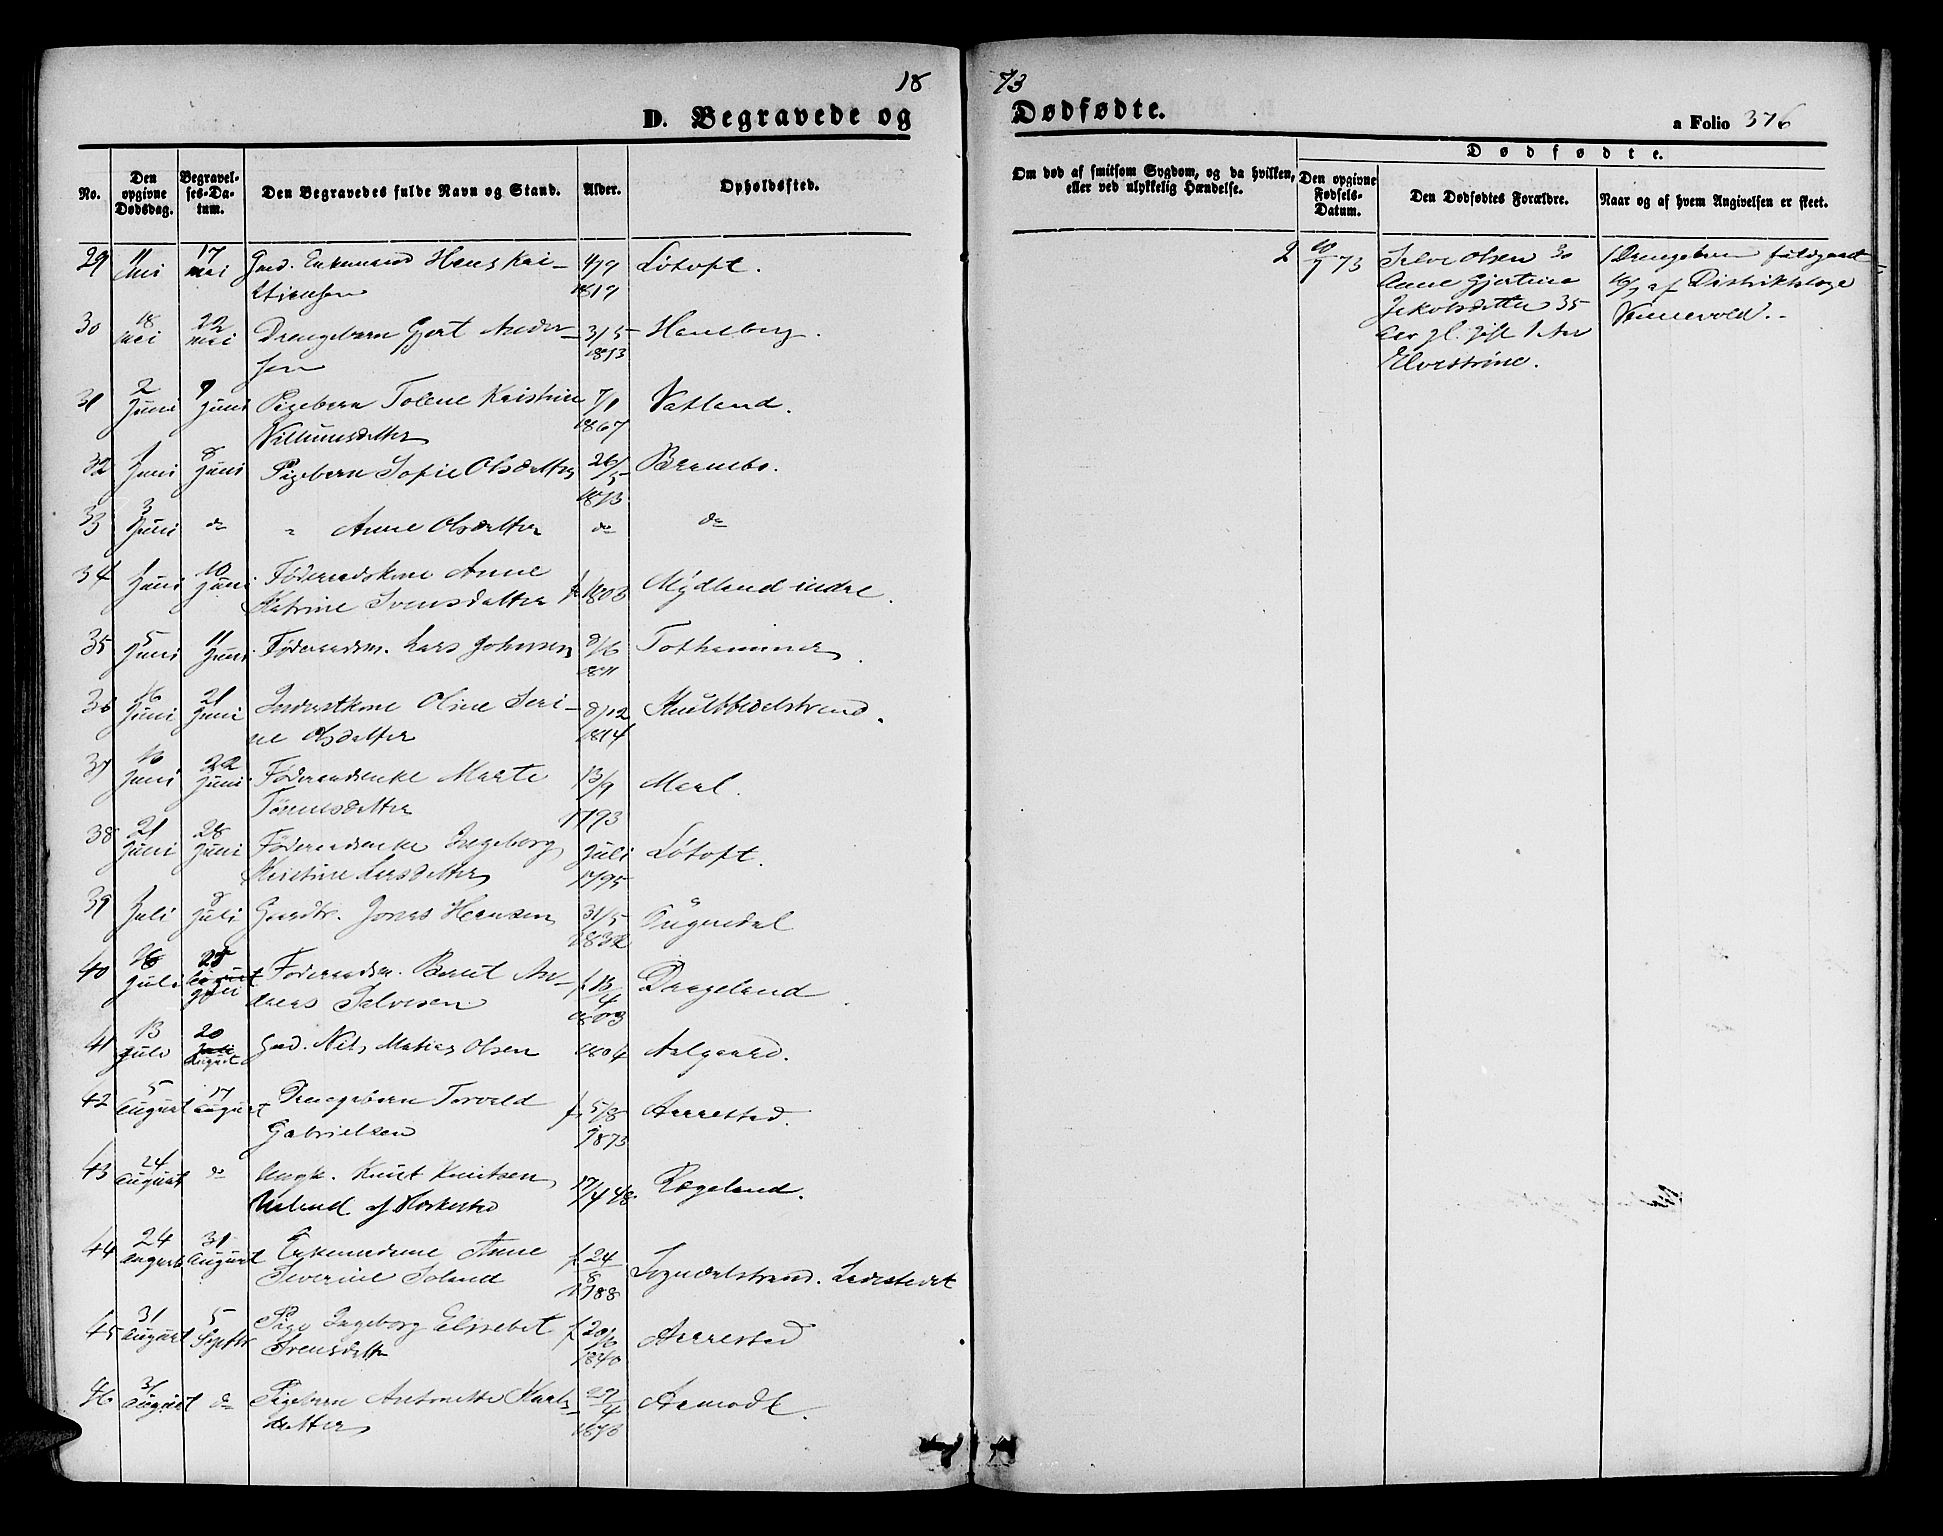 18
D. Begravede og
No.
Den opgivne Dødsdag.
Begravelses-Datum.
Den Begravedes fulde Navn og Stand.
Alder.
Opholdssted.
29 11 Mai 17 mai Gmd. Enkemand Hans Kri- 4/9 Løtoft.
stiansen 1819
30 18 Mai 22 mai Drengebarn Gjert Ander- 3/5 Hauberg.
sen 1873
31 2 Juni 7 Juni Pigebarn Tolene Kristine 7/1 Vatland.
Villumsdatter 1867
32 1 Juni 8 Juni Pigebarn Sofie Olsdatter 26/5
1873
33 3 Juni do " Anne Olsdatter do do
34 1 Juni 10 Juni Føderaadskone Anne
Katrine Svensdatter f. 1803 Mydland indre.
35 5 Juni 11 Juni Føderaadsm. Lars Johnsen 9/6
1811
36 16 Juni 21 Juni Inderstkone Oline Seri- 8/12
ne Olsdatter 1814
37 16 Juni 22 Juni Føderaadsenke Marte 13/9
Tønnesdatter 1793
38 21 Juni 28 Juni Føderaadsenke Ingeborg Juli Løtoft.
Kirstine Larsdatter 1795
39 1 Juli 8 Juli Gaardbr. Jonas Hansen 31/5
1832
40 Juli Juli Føderaadsm. Berut An- f. 13/4 Drageland
dreas Salvesen 1803
41 13 Juli 20 August Gmd. Nils Matias Olsen 1804 Aalgaard.
42 5 August 17 August Drengebarn Torvald f. 5/8 Aarrestad.
Gabrielsen 1873
43 24 August do Ungk. Knut Knutsen 17/4 48 Rægeland.
af
44 24 August 31 August Enkemadame Anne f. 24/8
Severine Soland 1788 Sogndalstrand. Ladestedet
45 31 August 5 Septbr Pige Ingeborg Elisebet f. 20/6 Aarrestad
Svensdatter 1840
46 31 August do Pigebarn Antonette Karls- 29/4 Aamodt.
datter 1873
73
Dødfødte.
a Folio 376
Om død af smitsom Sygdom, og da hvilken,
eller ved ulykkelig Hændelse.
Dødfødte.
Den opgivne Fødsels-Datum.
Den Dødfødtes Forældre.
Naar og af hvem Angivelsen er skeet.
2 73 Salve Olsen 30 1 Drengebarn fuldbaaret
Anne Gjertine af Distriktslæge
Jakobsdatter 35
Aar gl. gift 1 Aar